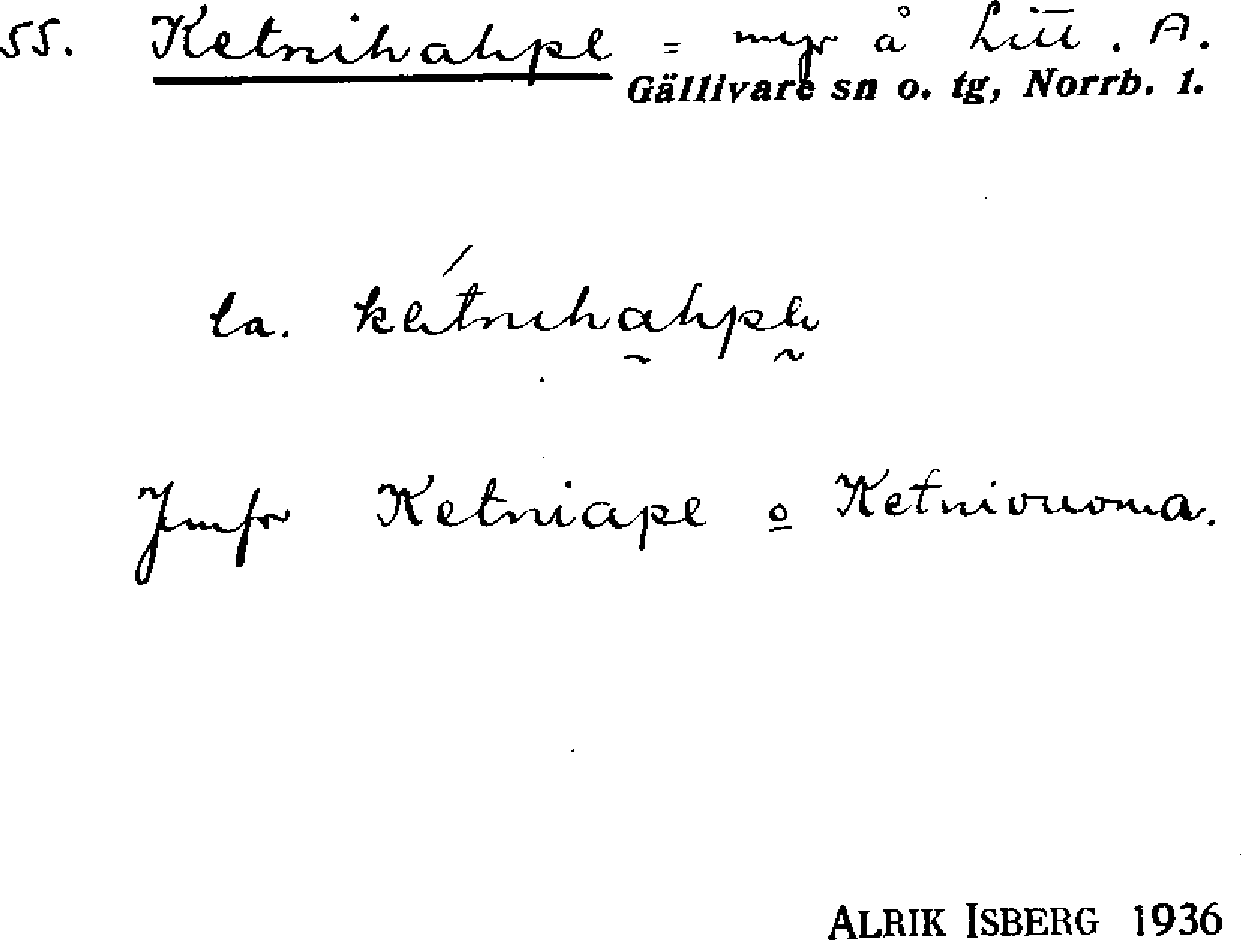 55. Ketnihahpe = myr å Litt. A.
Gällivare sn o. tg, Norrb. 1.
la.
Jmfr Ketniape o Ketnivuoma.
ALRIK ISBERG 1936